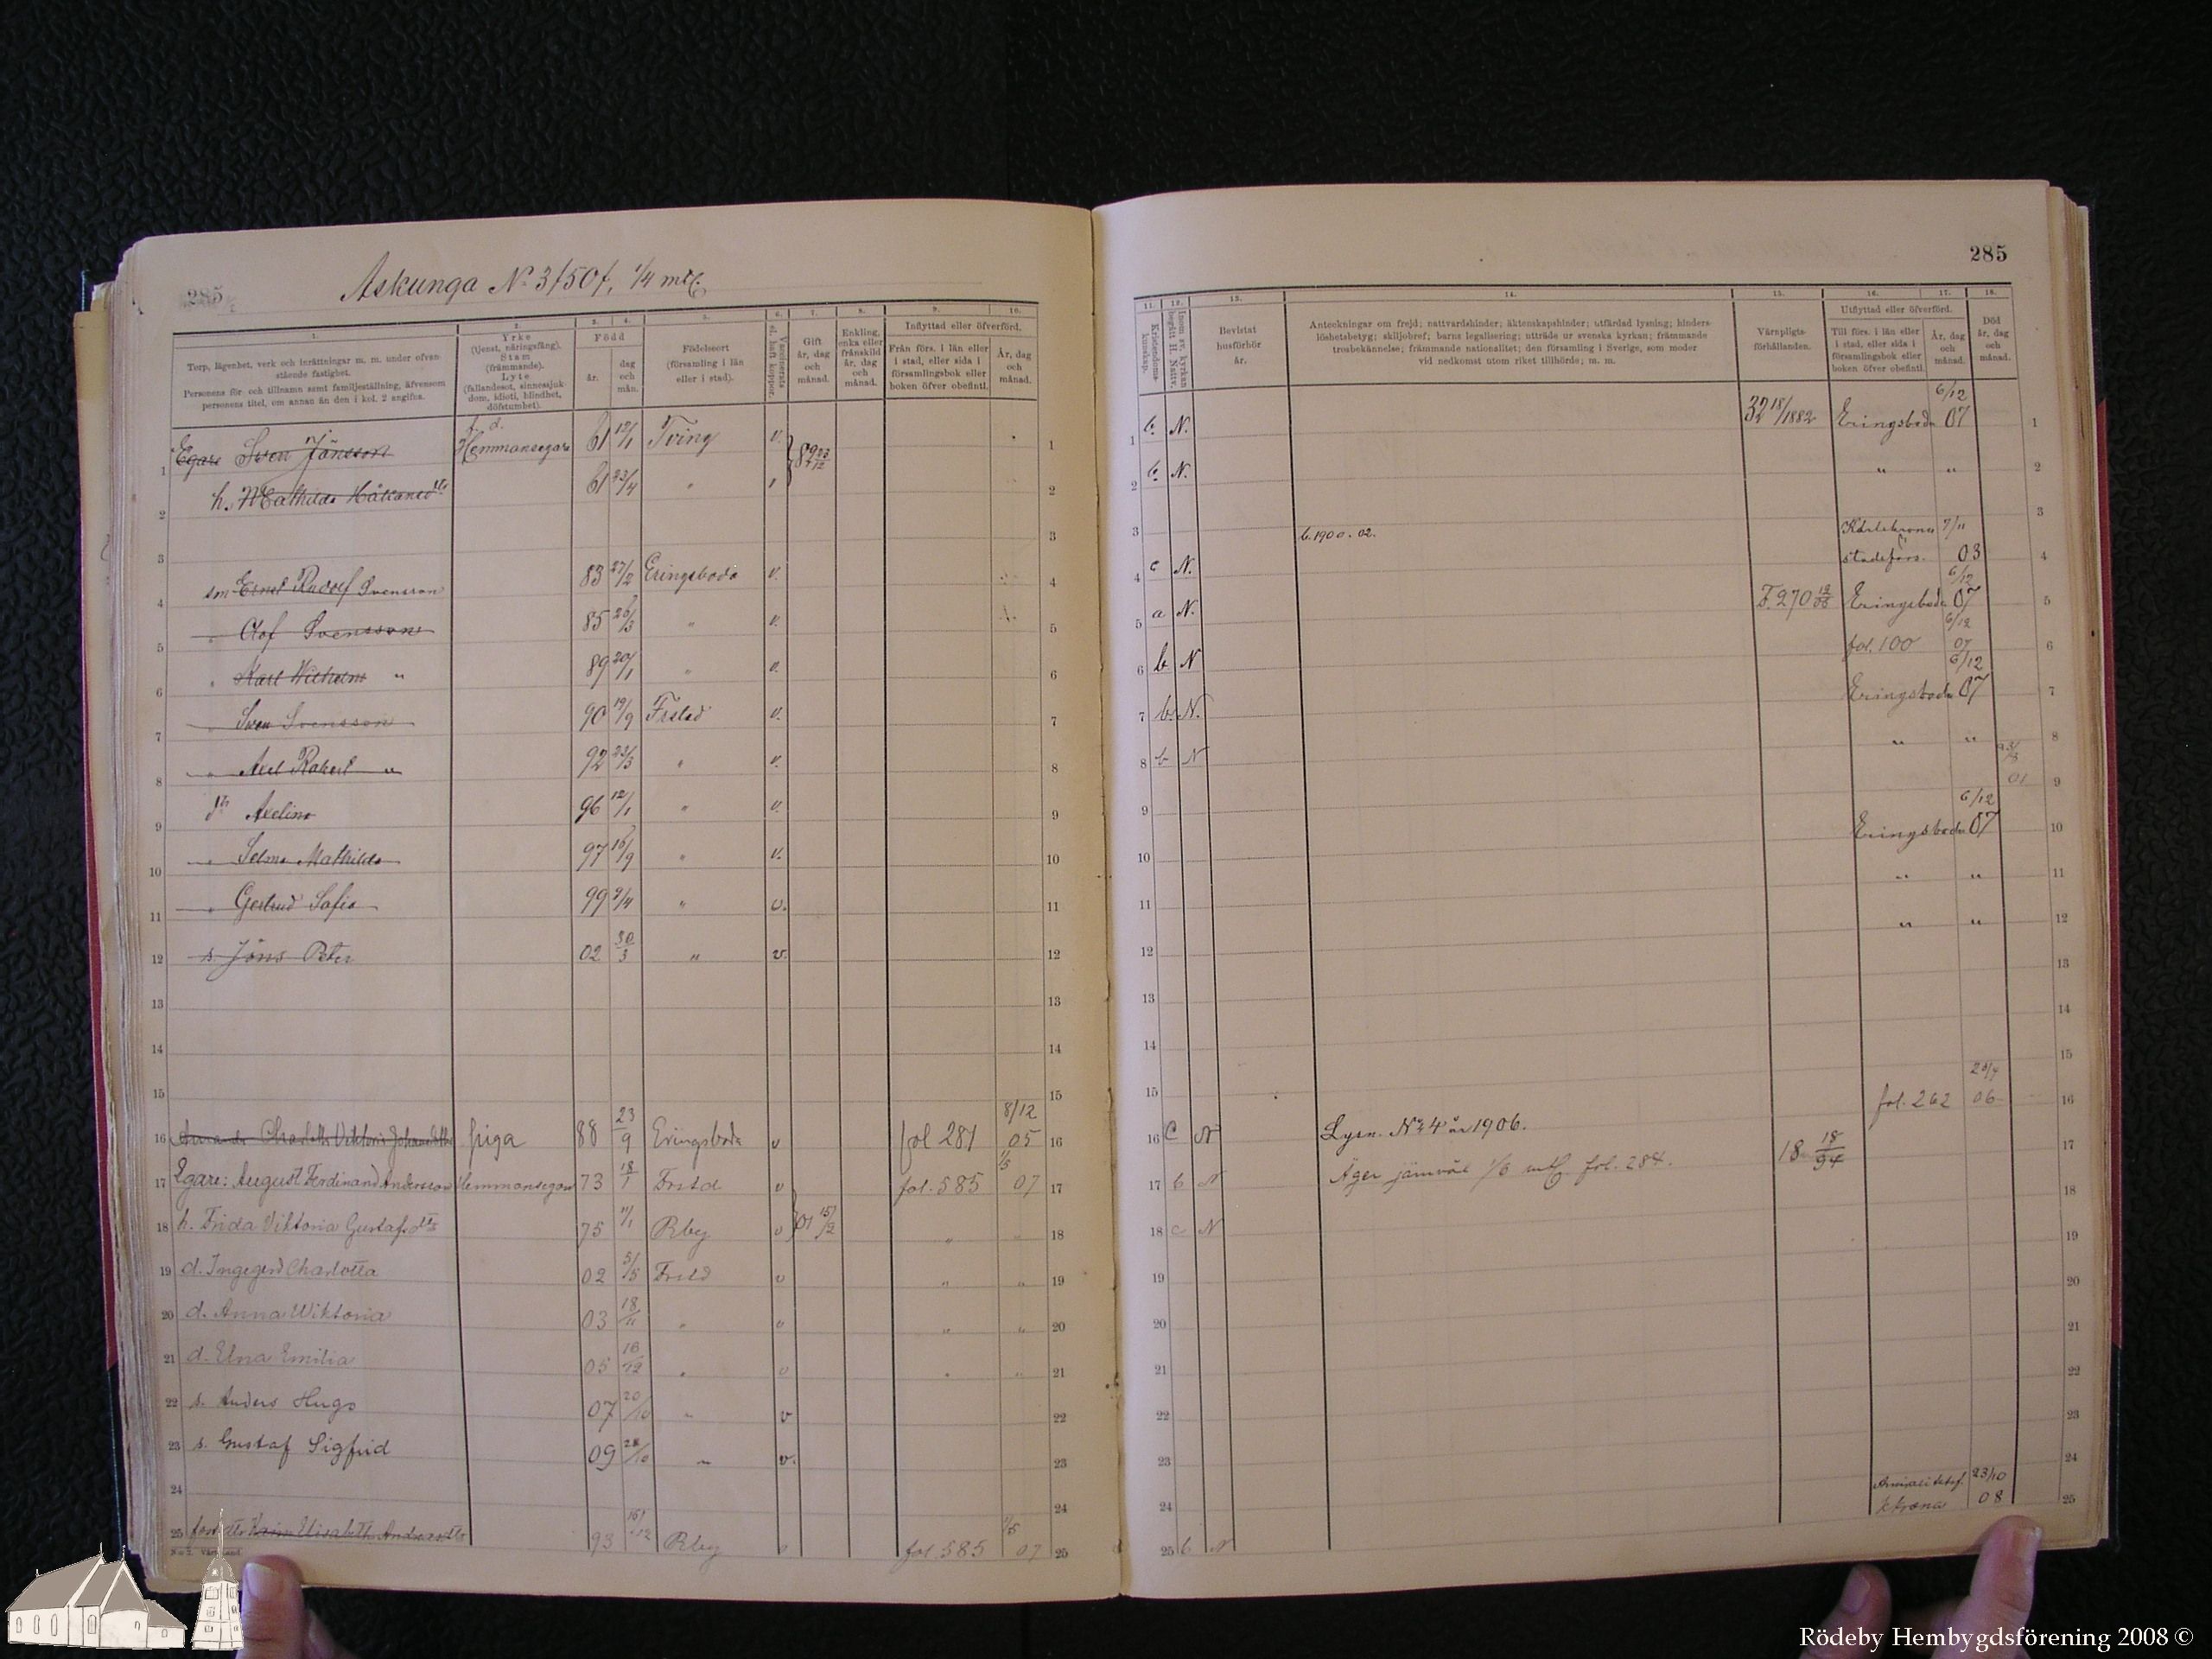 285
Askunga No 3/50/, 1/4 mtl.
1. 2. 3. 4. 5. 6. 7. 8. 9. 10.
Torp, lägenhet, verk och inrättningar m. m. under ofvanstående fastighet.
Personens för- och tillnamn samt familjeställning, äfvensom personens titel, om annan än den i kol. 2 angifna.
Yrke (tjenst, näringsfång). Stam (främmande). Lyte (fallandesot, sinnessjukdom, idioti, blindhet, döfstumhet).
Född
år. dag och mån.
Födelseort (församling i län eller i stad).
Vaccinerats el. haft koppor.
Gift år, dag och månad.
Enkling, enka eller frånskild år, dag och månad.
Inflyttad eller öfverförd.
Från förs. i län eller i stad, eller sida i församlingsbok eller boken öfver obefintl.
År, dag och månad.
1 Egare Sven Jönsson f. d. Hemmansegare 61 Tving v. 1
2 h. Mathilda Håkansdtr 61 23/4 " 2
3 3
4 sm Ernst Rudolf Svensson 83 27/2 Eringsboda v. 4
5 " Olof Svensson 85 26/3 " v. 5
6 " Karl Wilhelm " 89 20/1 " v. 6
7 " Sven Svensson 90 19/9 Frstad v. 7
8 " Axel Robert " 92 23/3 " v. 8
9 dr Axelina 96 12/1 " v. 9
10 " Selma Mathilda 97 16/9 " v. 10
11 " Gertrud Sofia 99 9/4 " v. 11
12 s. Jöns Peter 02 30/3 " v. 12
13 13
14 14
15 15
16 Charlotta Viktoria piga 88 23/9 Eringsboda v fol 281 8/12 05 16
17 Egare: August Ferdinand Andersson Hemmansegare 73 18/1 Frstd v fol. 585 1/5 07 17
18 h. Frida Viktoria Gustafsdtr 75 11/1 Rby v 01 15/2 " " 18
19 d. Ingegerd Charlotta 02 5/5 Frstd v " " 19
20 d. Anna Wiktoria 03 18/11 " v " " 20
21 d. Elna Emilia 05 16/12 " v " " 21
22 s. Anders Hugo 07 20/10 " v 22
23 s. Gustaf Sigfrid 09 28/10 " v. 23
24 24
25 Elisabeth 93 Rby fol. 585 1/5 07 25
285
11. 12. 13. 14. 15. 16. 17. 18.
Kristendomskunskap.
Inom sv. kyrkan begått H. Nattv.
Bevistat husförhör år.
Anteckningar om frejd; nattvardshinder; äktenskapshinder; utfärdad lysning; hinderslöshetsbetyg; skiljobref; barns legalisering; utträde ur svenska kyrkan; främmande trosbekännelse; främmande nationalitet; den församling i Sverige, som moder vid nedkomst utom riket tillhörde; m. m.
Värnpligtsförhållanden.
Utflyttad eller öfverförd.
Till förs. i län eller i stad, eller sida i församlingsbok eller boken öfver obefintl.
År, dag och månad.
Död år, dag och månad.
1 b. N. 32 18/1882 Eringsboda 6/12 07 1
2 b. N. " " 2
3 b. 1900. 02. Karlskrona 7/11 3
4 c N. stadsförs. 03 4
5 a N. F. 270 Eringsboda 6/12 07 5
6 b N fol. 100 6/12 07 6
7 b. N. Eringsboda 6/12 07 7
8 b N " " 8
9 01 9
10 Eringsboda 6/12 07 10
11 " " 11
12 " " 12
13 13
14 14
15 15
16 C N Lysn. No 4 år 1906. fol. 262 06 16
17 b N Äger jämväl 1/6 mtl. fol. 284. 18 18/94 17
18 c N 18
19 19
20 20
21 21
22 22
23 23
24 24
25 b. N Amiralitetsf. K.krona 23/10 08 25
Rödeby Hembygdsförening 2008 ©